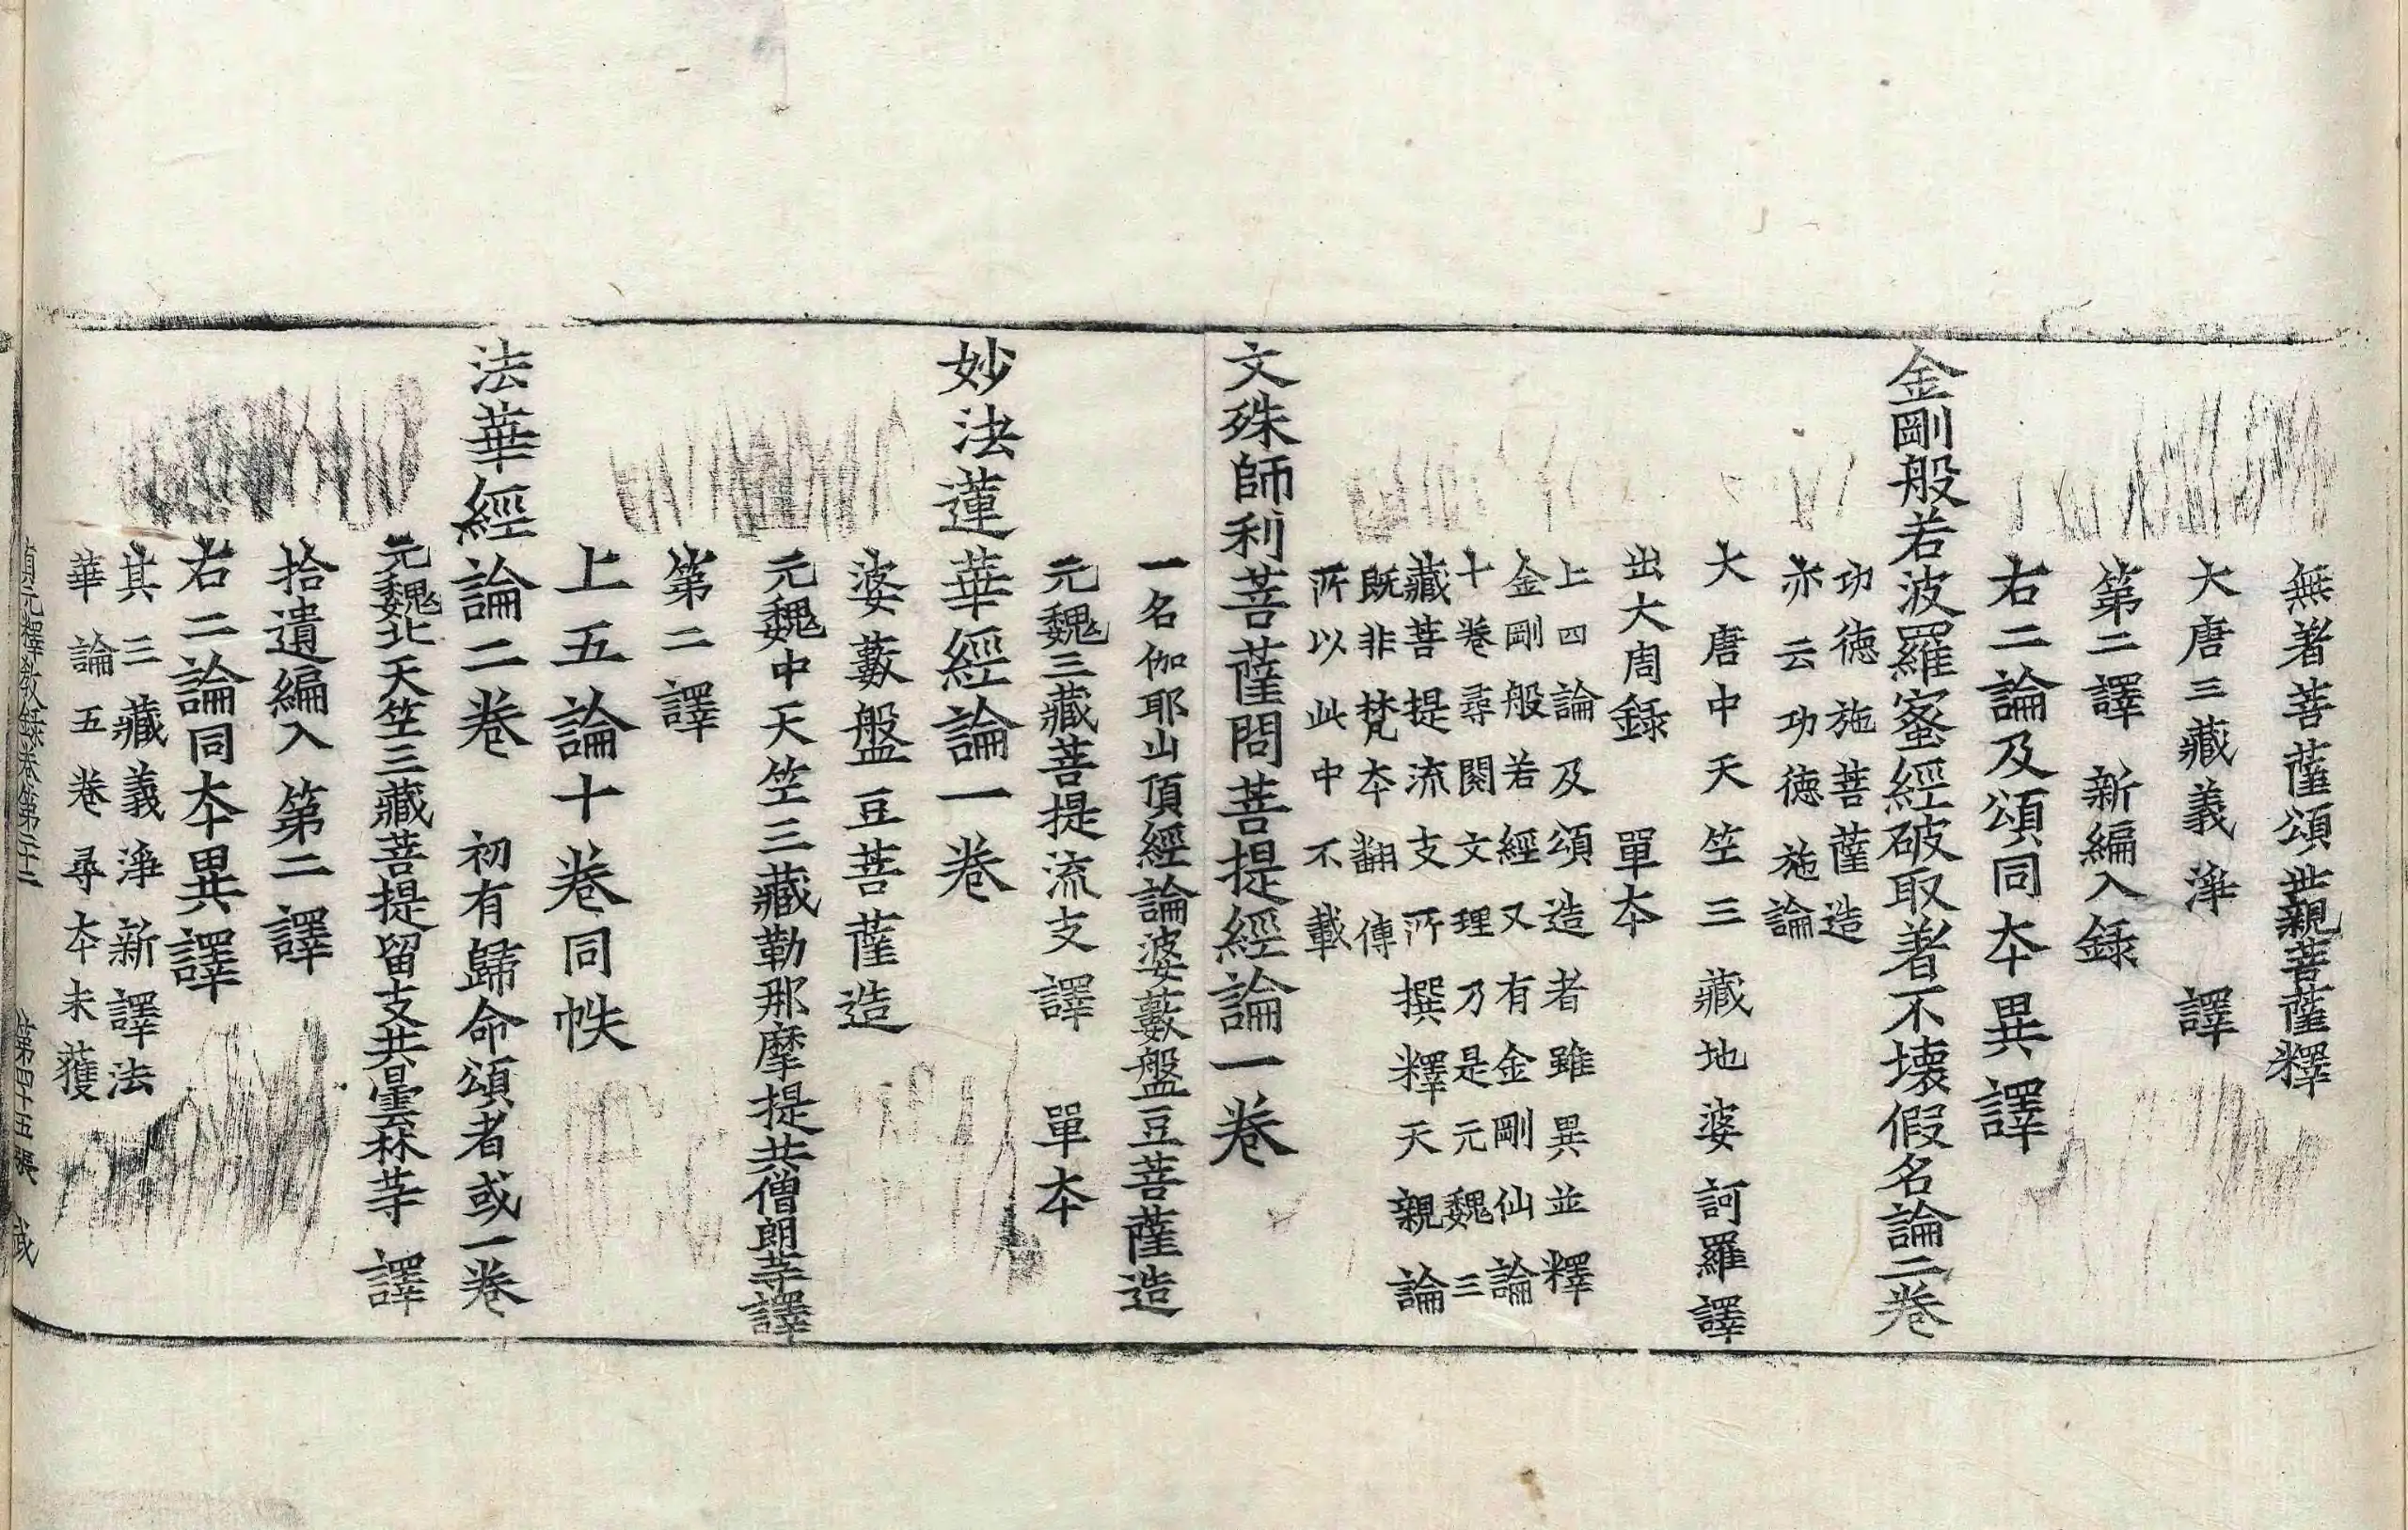 無著菩薩頌世親菩薩釋
大唐三藏義淨 譯
第二譯 新編入錄
右二論及頌同本異譯
金剛般若波羅蜜經破取著不壞假名論二卷
功德施菩薩造
亦云功德施論
大唐中天竺三藏地婆訶羅譯
出大周錄 單本
上四論及頌造者雖異並釋
金剛般若經又有金剛仙論
十卷尋閱文理乃是元魏三
藏菩提流支所撰釋天親論
既非梵本翻傳
所以此中不載
文殊師利菩薩問菩提經論一卷
一名伽耶山頂經論婆藪盤豆菩薩造
元魏三藏菩提流支譯 單本
妙法蓮華經論一卷
婆藪盤豆菩薩造
元魏中天竺三藏勒那摩提共僧朗等譯
第二譯
上五論十卷同帙
法華經論二卷 初有歸命頌者或一卷
元魏北天竺三藏菩提留支共曇林等 譯
拾遺編入 第二譯
右二論同本異譯
其三藏義淨新譯法
華論五卷尋本未獲
貞元釋教錄卷第二十二 第四十五張